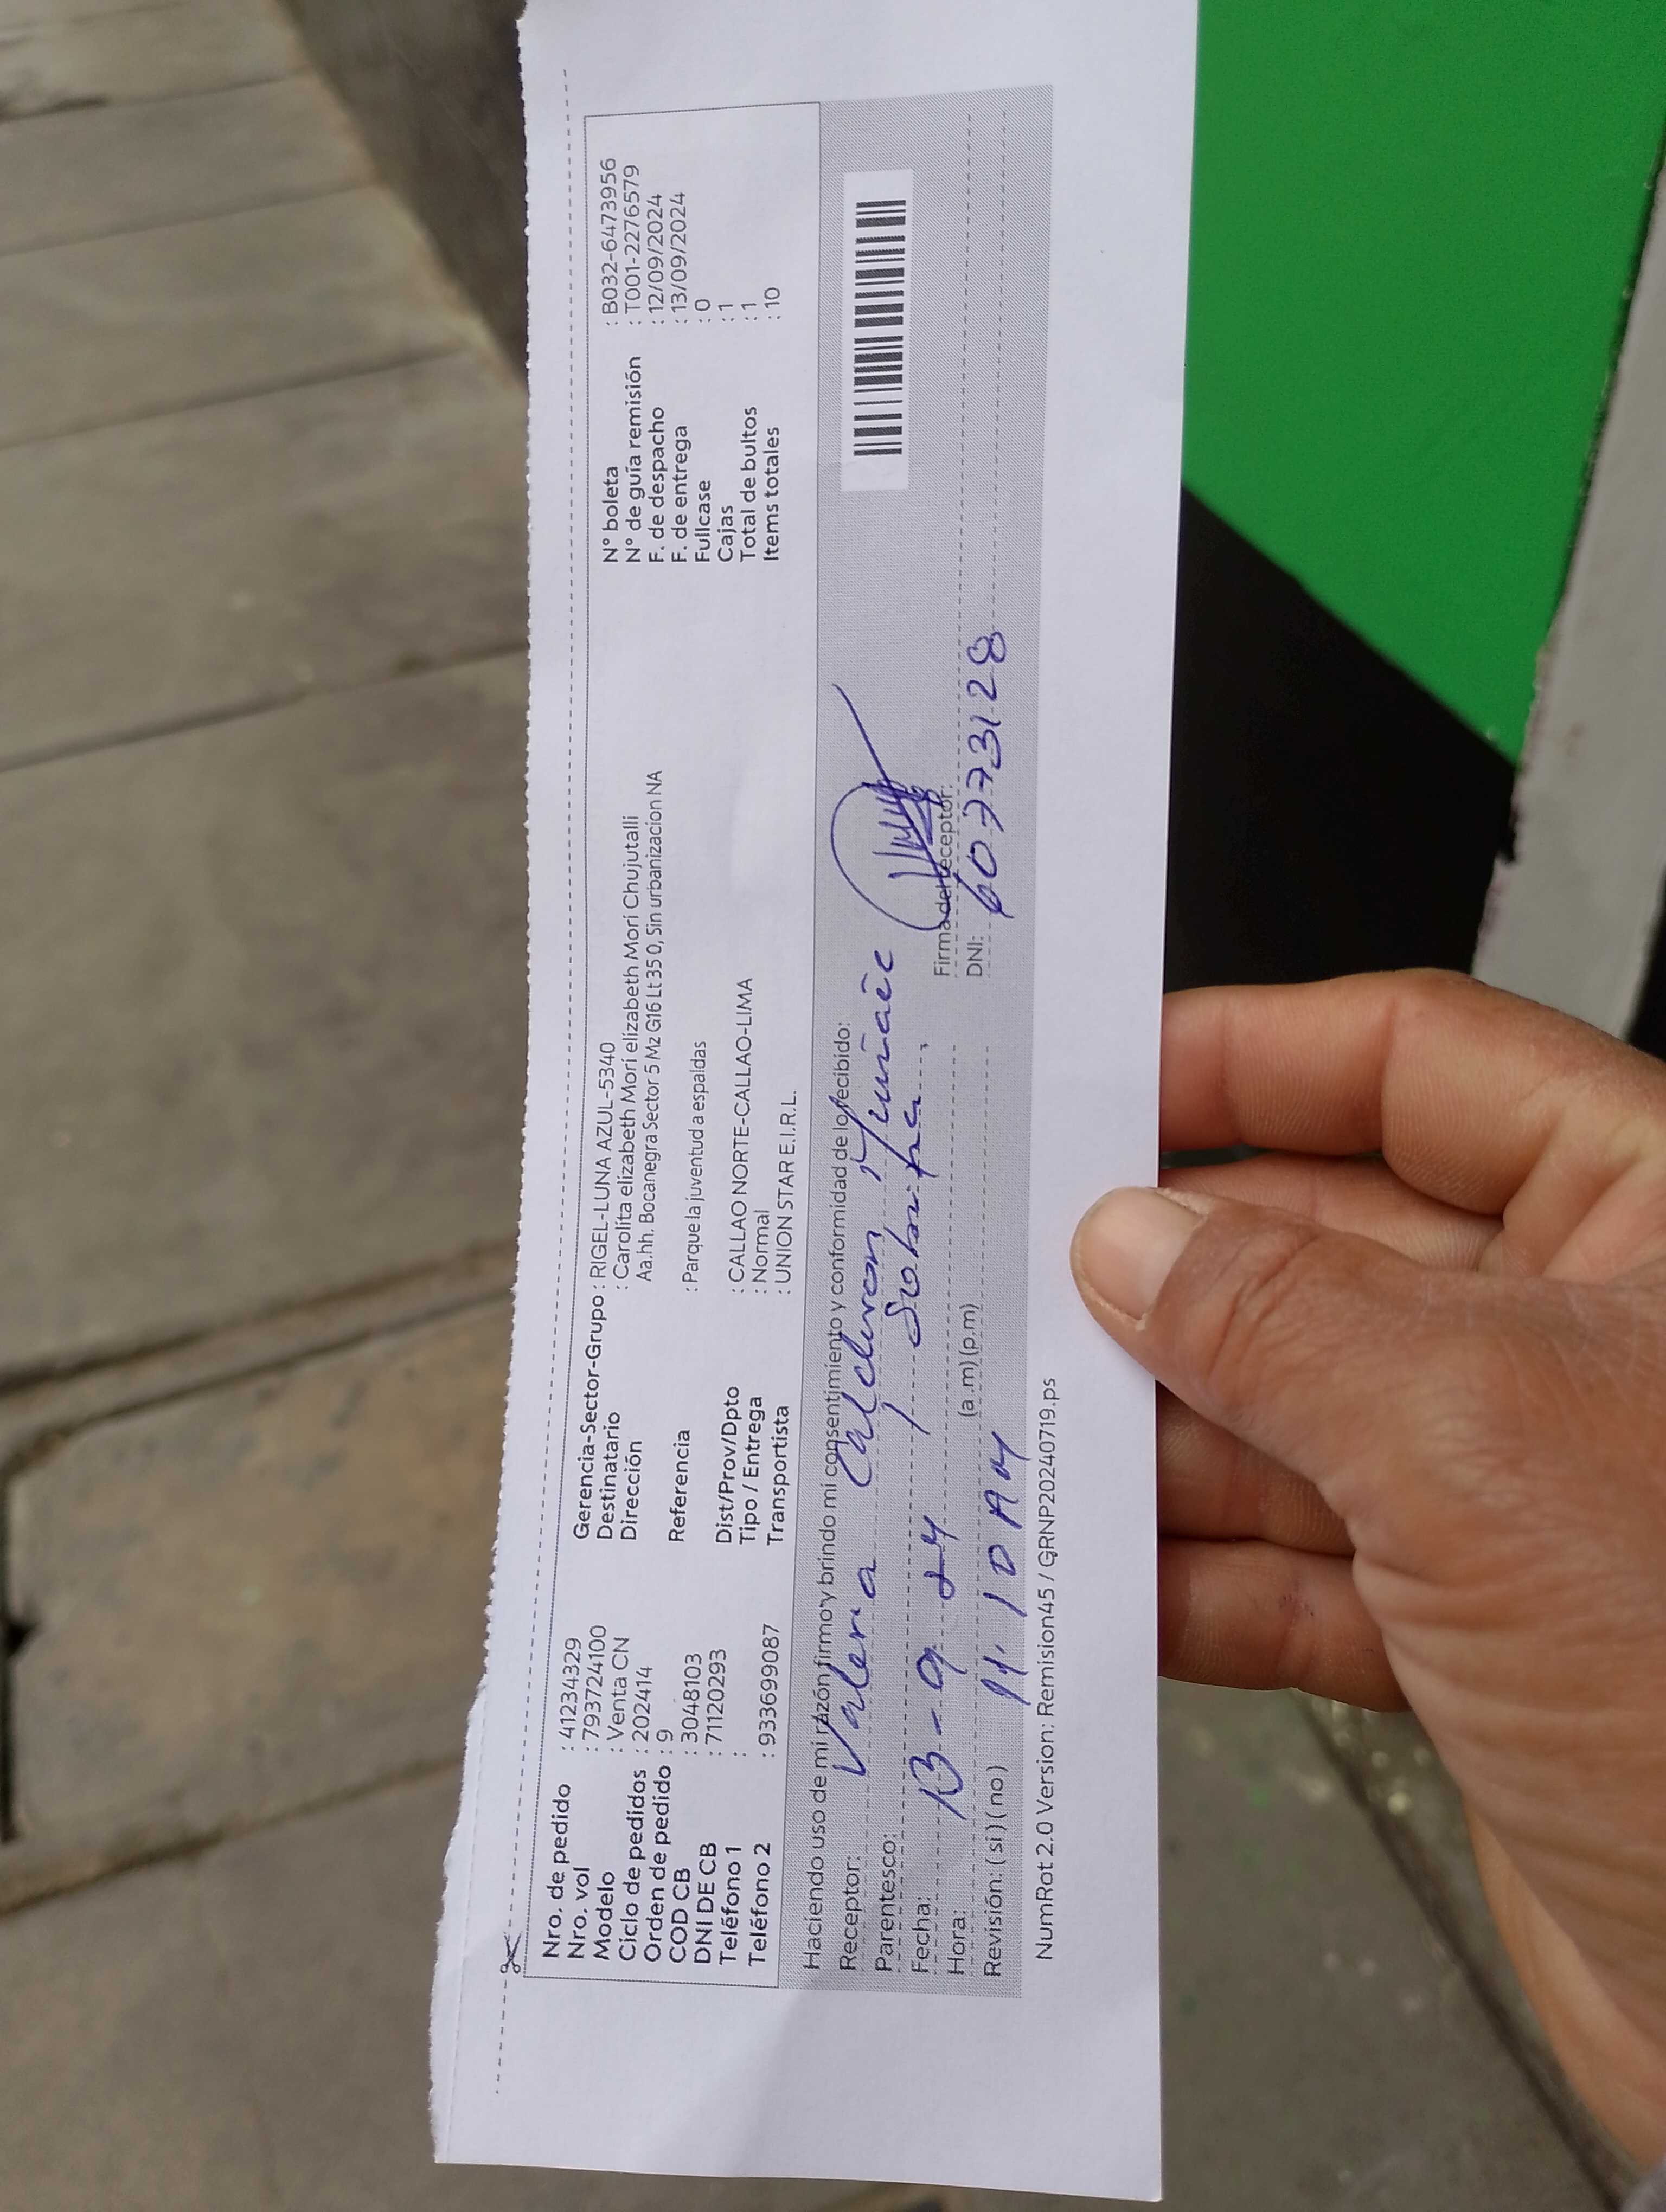 Nro. de pedido : 41234329
Nro. vol : 793724100
Modelo : Venta CN
Ciclo de pedidos : 202414
Orden de pedido : 9
COD CB : 3048103
DNI DE CB : 71120293
Teléfono 1 :
Teléfono 2 : 933699087
Gerencia-Sector-Grupo : RIGEL-LUNA AZUL-5340
Destinatario : Carolita elizabeth Mori elizabeth Mori Chujutalli
Dirección : Aa.hh. Bocanegra Sector 5 Mz G16 Lt 35 0, Sin urbanizacion NA
Referencia : Parque la juventud a espaldas
Dist/Prov/Dpto : CALLAO NORTE-CALLAO-LIMA
Tipo / Entrega : Normal
Transportista : UNION STAR E.I.R.L.
N° boleta : B032-6473956
N° de guía remisión : T001-2276579
F. de despacho : 12/09/2024
F. de entrega : 13/09/2024
Fullcase : 0
Cajas : 1
Total de bultos : 1
Items totales : 10
Haciendo uso de mi razón firmo y brindo mi consentimiento y conformidad de lo recibido:
Receptor: Valeria Calderon
Parentesco: / Sobrina
Fecha: 13-9 24
Firma del receptor:
Hora: 11.10 AM (a.m) (p.m)
DNI: 60773128
Revisión: (si) (no)
NumRot 2.0 Version: Remision45 / GRNP20240719.ps